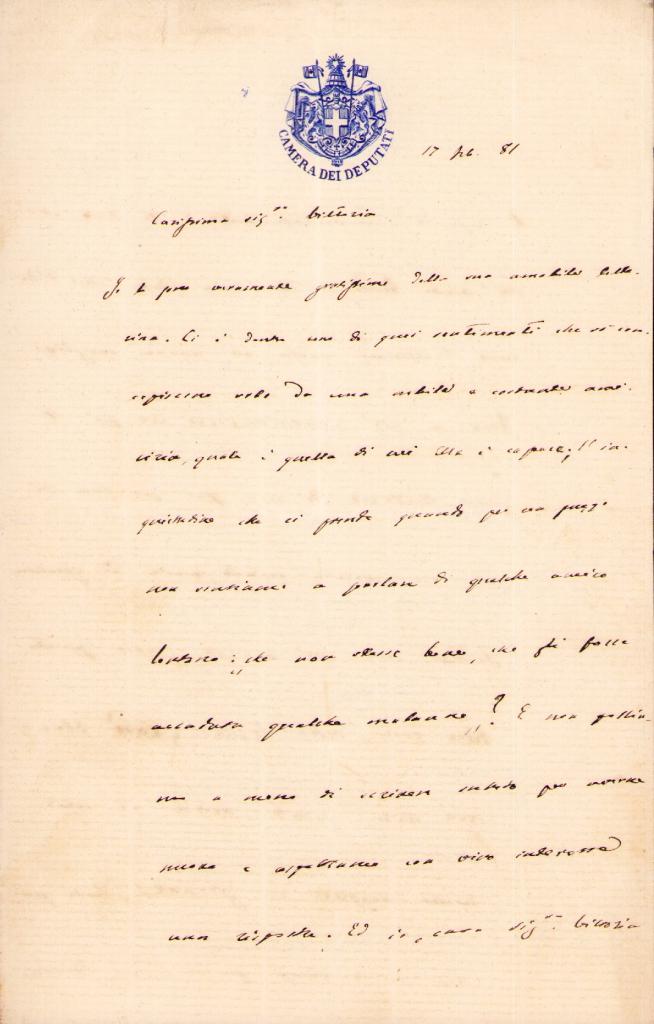 CAMERA DEI DEPUTATI
17 feb. 81
Carissima sig.ra Vittoria
Io le sono veramente gratissimo della sua amabile lette-
rina. Ci è dentro uno di quei sentimenti che si con-
cepiscono solo da una nobile e costante ami-
cizia, quale è quella di cui Ella è capace; l'in-
quietudine che ci prende quando per un pezzo
non sentiamo a parlare di qualche amico
lontano: "che non stesse bene, che gli fosse
accaduto qualche malanno"? E non possia-
mo a meno di scrivere subito per averne
nuove e aspettiamo con vivo interesse
una risposta. Ed io, cara sig.ra Vittoria